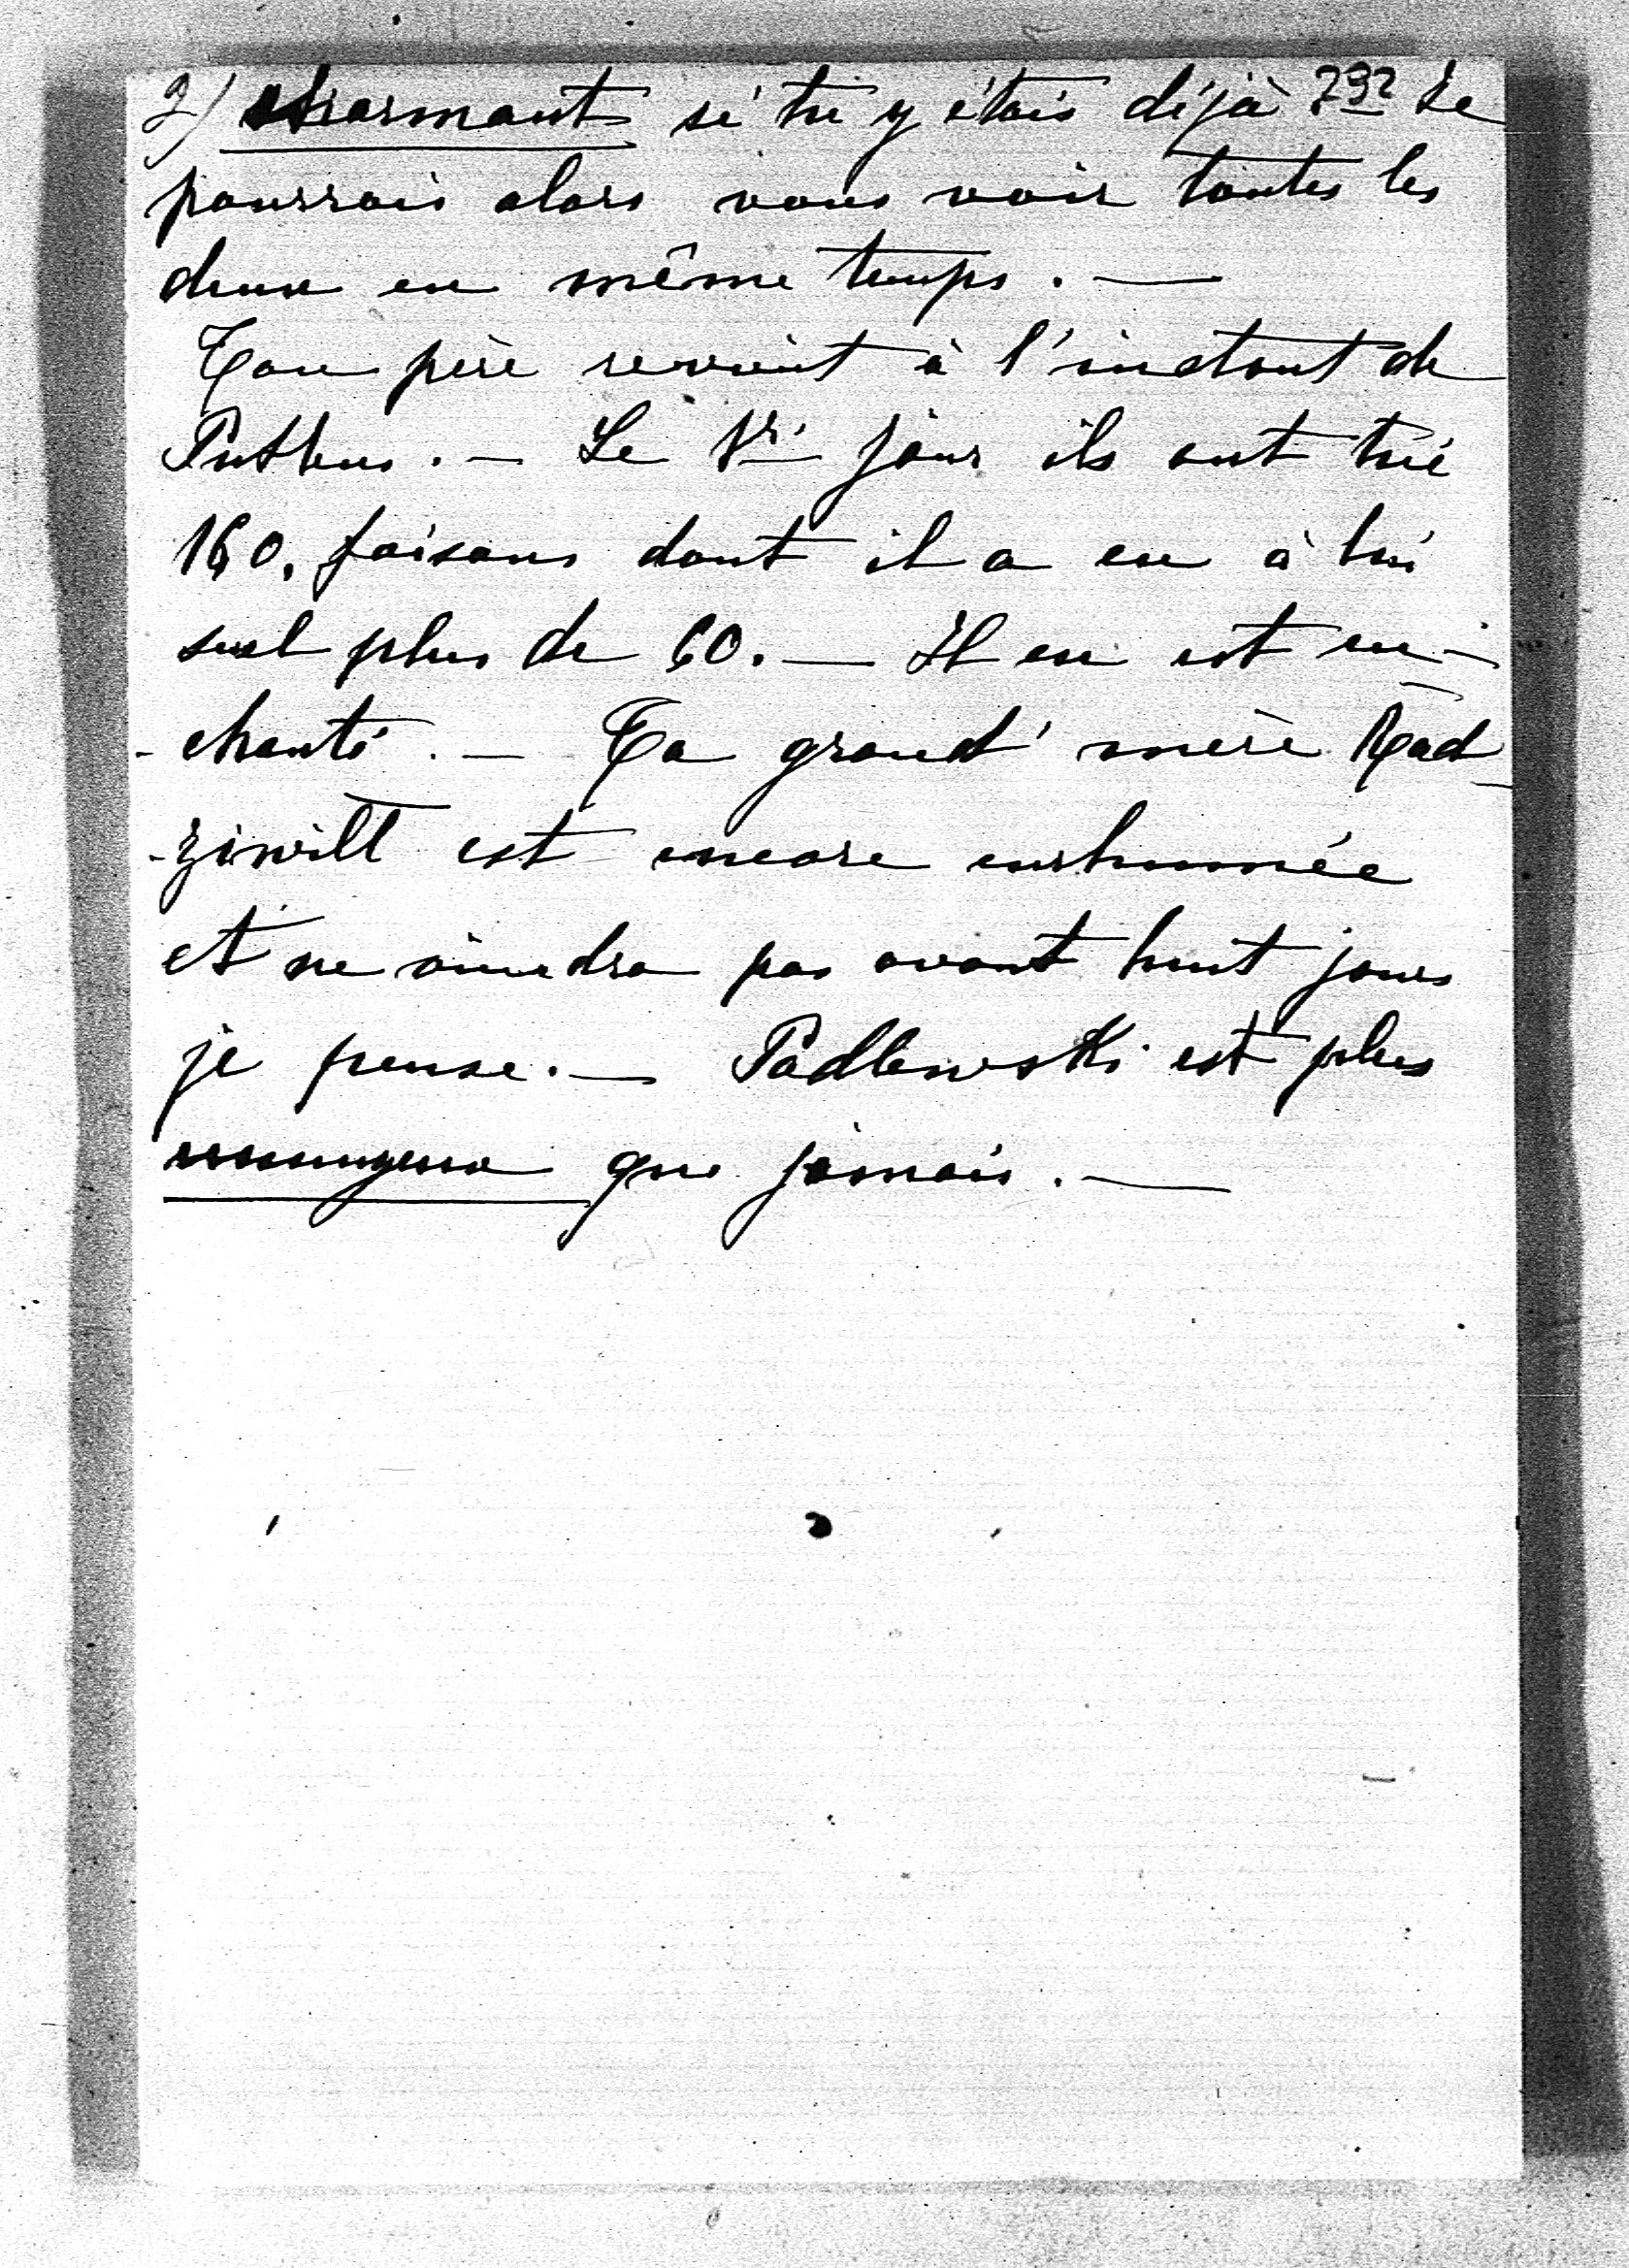 2) charmant si tu y étais déjà 792 Je
pourrais alors vous voir toutes les
deux en même temps. —
Ton père revient à l'instant de
Putbus. — Le 1er jour ils ont tué
160, faisans dont il a eu à lui
seul plus de 60. — Il en est en-
-chanté. — Ta grand' mère Rad-
-ziwill est encore enrhumée
et ne viendra pas avant huit jours
je pense. — Padlewski est plus
que jamais. —